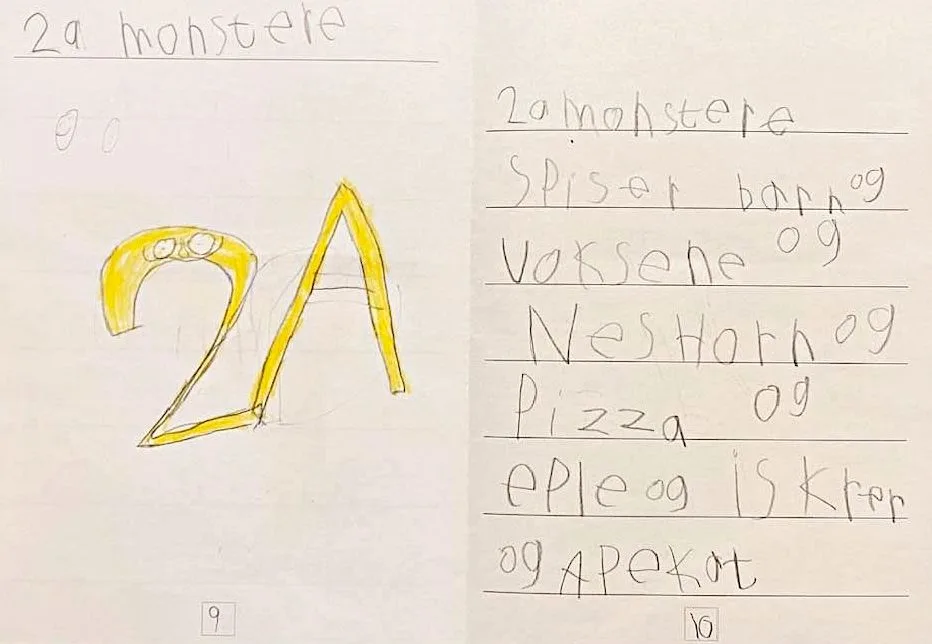 2a monstere
2A
9
2a monstere
spiser barn og
voksene og
NesHorn og
Pizza og
ePle og is krem
og APekat
10